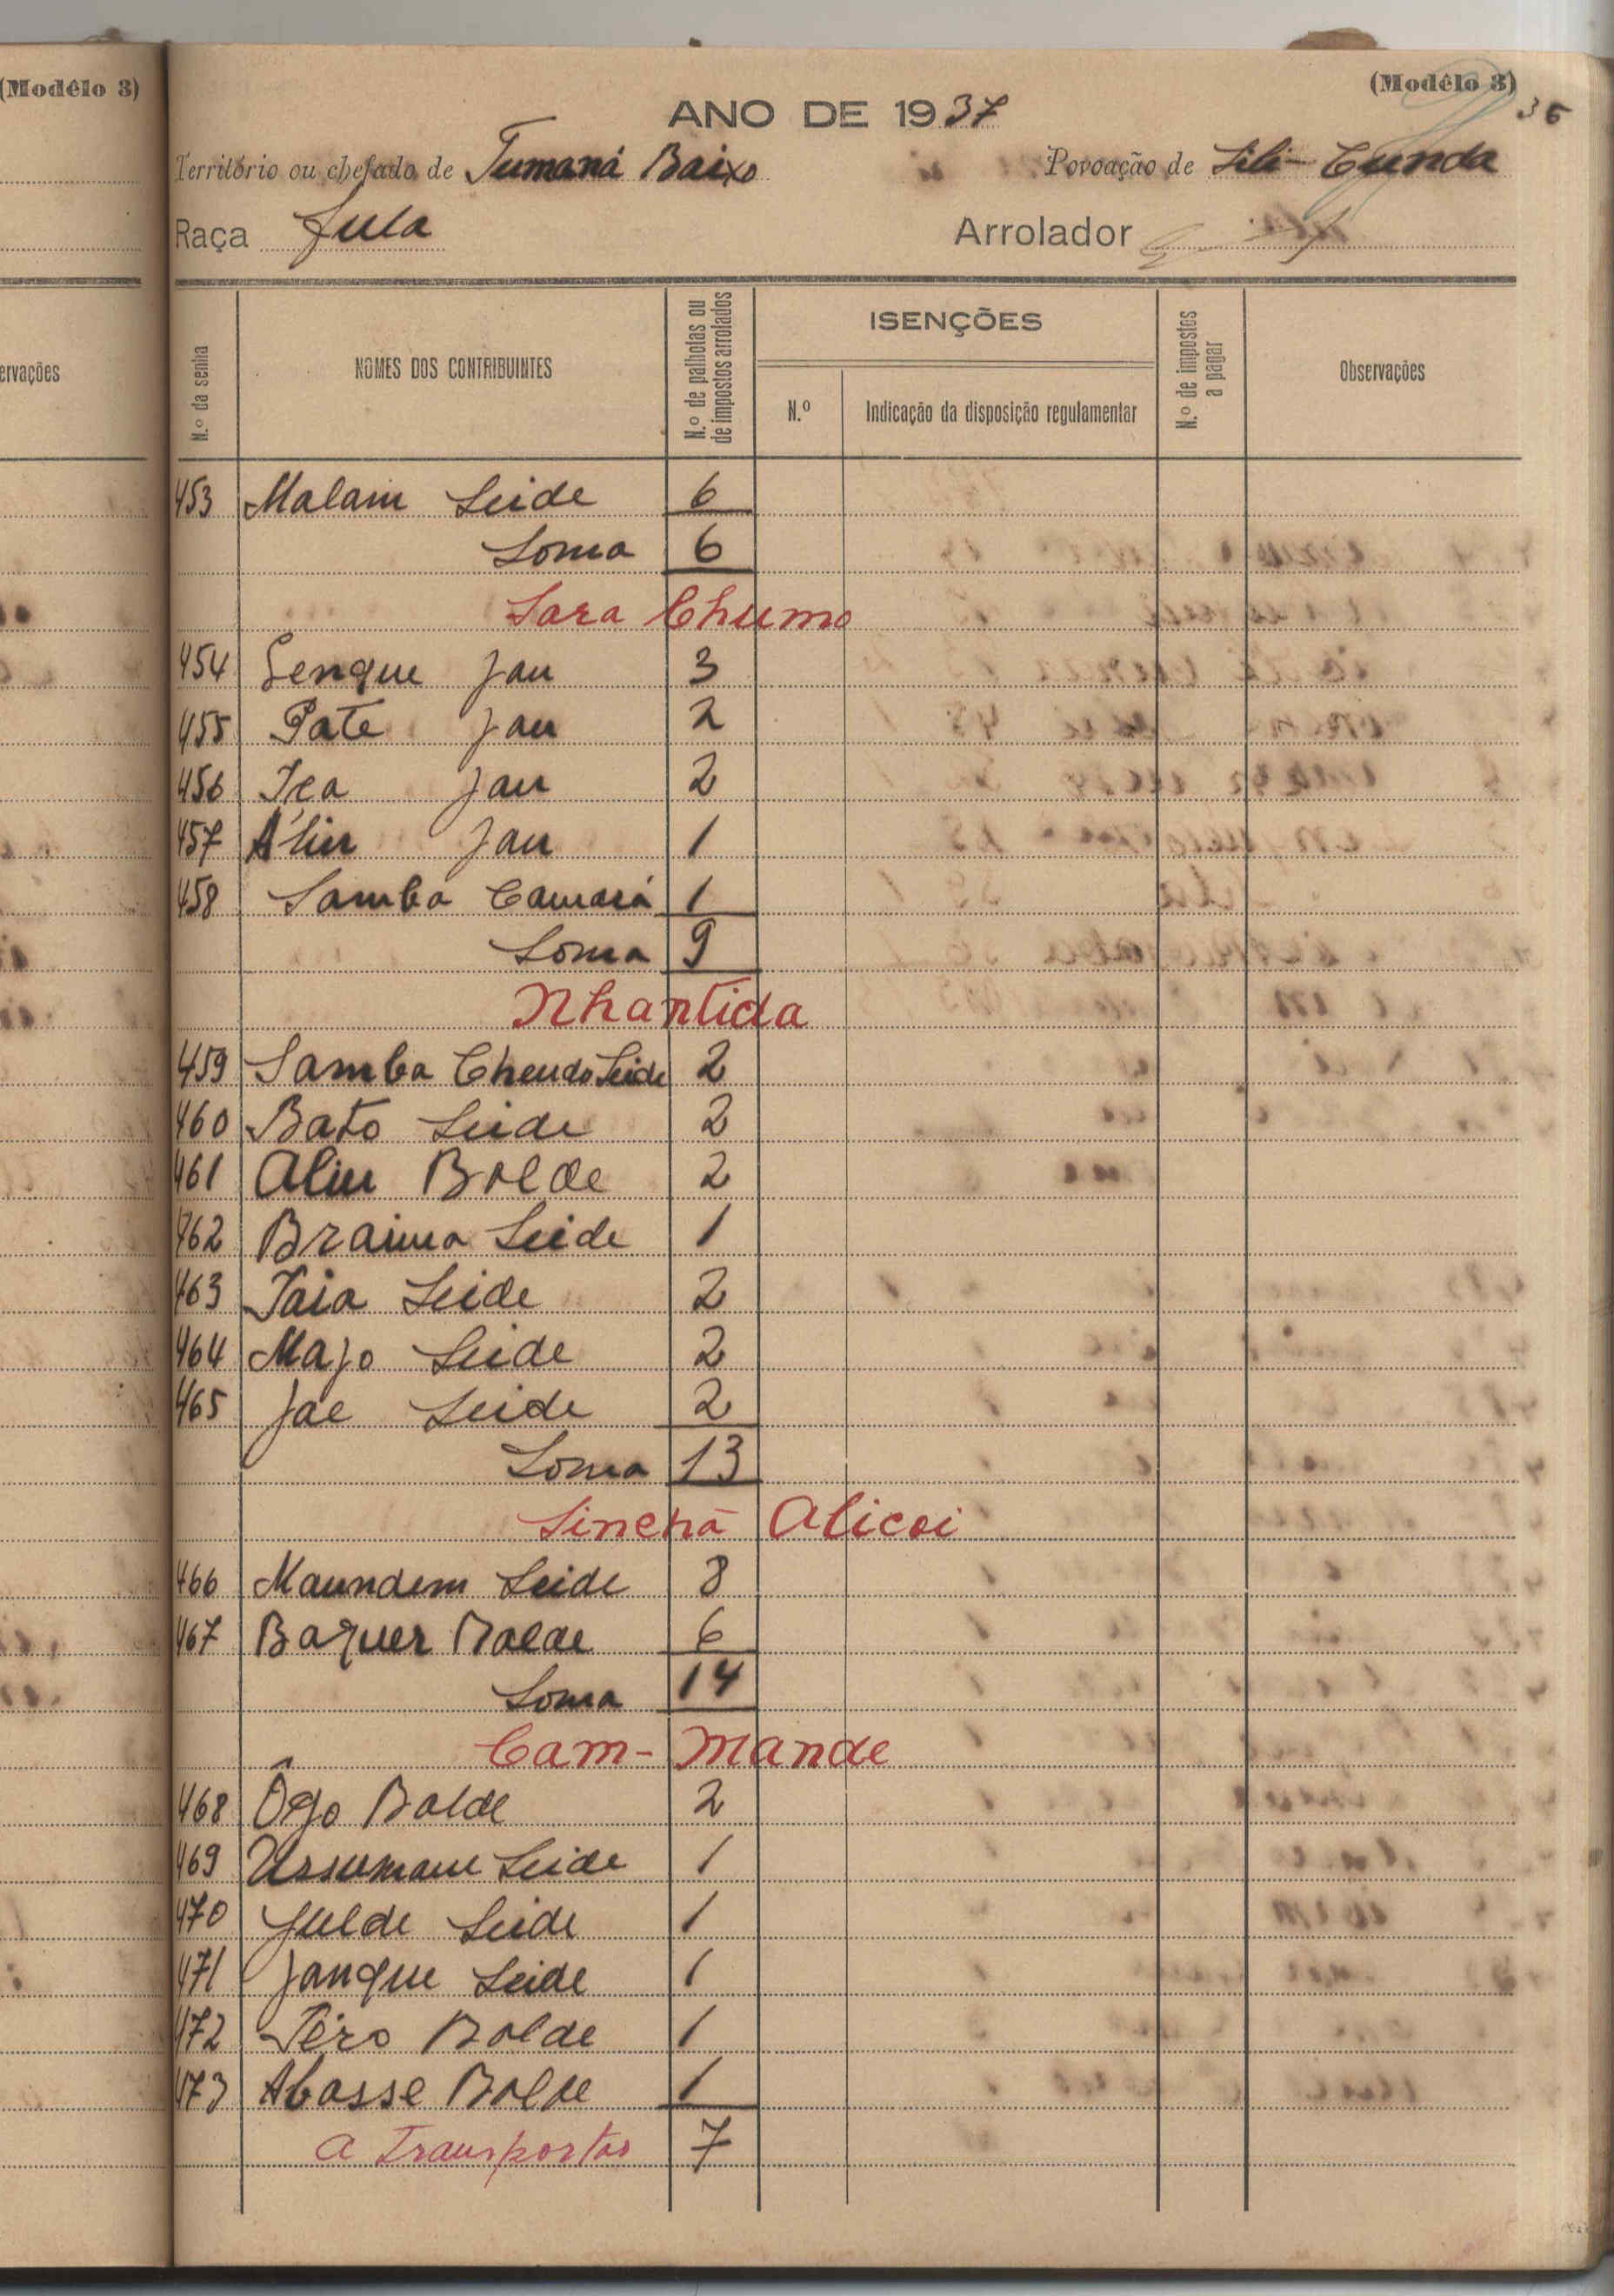 (Modêlo 3)
(Modêlo 3)
36
ANO DE 1937
Território ou chefado de Tumaná Baixo
Povoação de Sili-Cunda
Raça Fula
Arrolador
ervações
N.º da senha
NOMES DOS CONTRIBUINTES
N.º de palhotas ou de impostos arrolados
ISENÇÕES
N.º
Indicação da disposição regulamentar
N.º de impostos a pagar
Observações
453 Malam Seide 6
Soma 6
Sara Chumo
454 Senque Jau 3
455 Pate Jau 2
456 Iea Jau 2
457 Aliu Jau 1
458 Samba Camará 1
Soma 9
Nhantida
459 Samba Cheudo Seide 2
460 Bato Seide 2
461 Aliu Balde 2
462 Braima Seide 1
463 Iaia Seide 2
464 Majo Seide 2
465 Jae Seide 2
Soma 13
Sinchã Alicoi
466 Maundem Seide 8
467 Baquer Balde 6
Soma 14
Cam-Mande
468 Ôgo Balde 2
469 Ussumane Seide 1
470 Julde Seide 1
471 Janque Seide 1
472 Pêro Balde 1
473 Abasse Balde 1
A Transportar 7